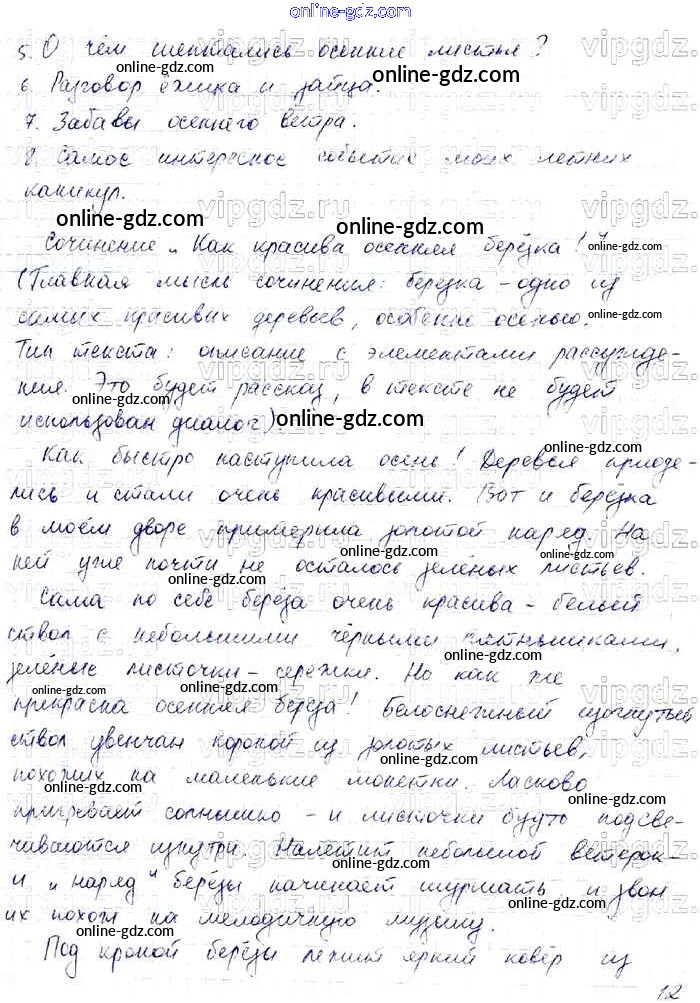 online-gdz.com
5. О чём шептались осенние листья?
6. Разговор ёжика и зайца.
7. Забавы осеннего ветра.
8. Самое интересное событие моих летних
каникул.
Сочинение „Как красива осенняя берёзка!"
(Главная мысль сочинения: берёзка – одно из
самых красивых деревьев, особенно осенью.
Тип текста: описание с элементами рассужде-
ния. Это будет рассказ, в тексте не будет
использован диалог).
Как быстро наступила осень! Деревья приоде-
лись и стали очень красивыми. Вот и берёзка
в моём дворе примерила золотой наряд. На
ней уже почти не осталось зелёных листьев.
Сама по себе берёза очень красива – белый
ствол с небольшими чёрными пятнышками,
зелёные листочки – серёжки. Но как же
прекрасна осенняя берёза! Белоснежный изогнутый
ствол увенчан короной из золотых листьев,
похожих на маленькие монетки. Ласково
пригревает солнышко – и листочки будто подсве-
чиваются изнутри. Налетит небольшой ветерок –
и „наряд" берёзы начинает шуршать и звон
их похож на мелодичную музыку.
Под кроной берёзы лежит яркий ковёр из
12